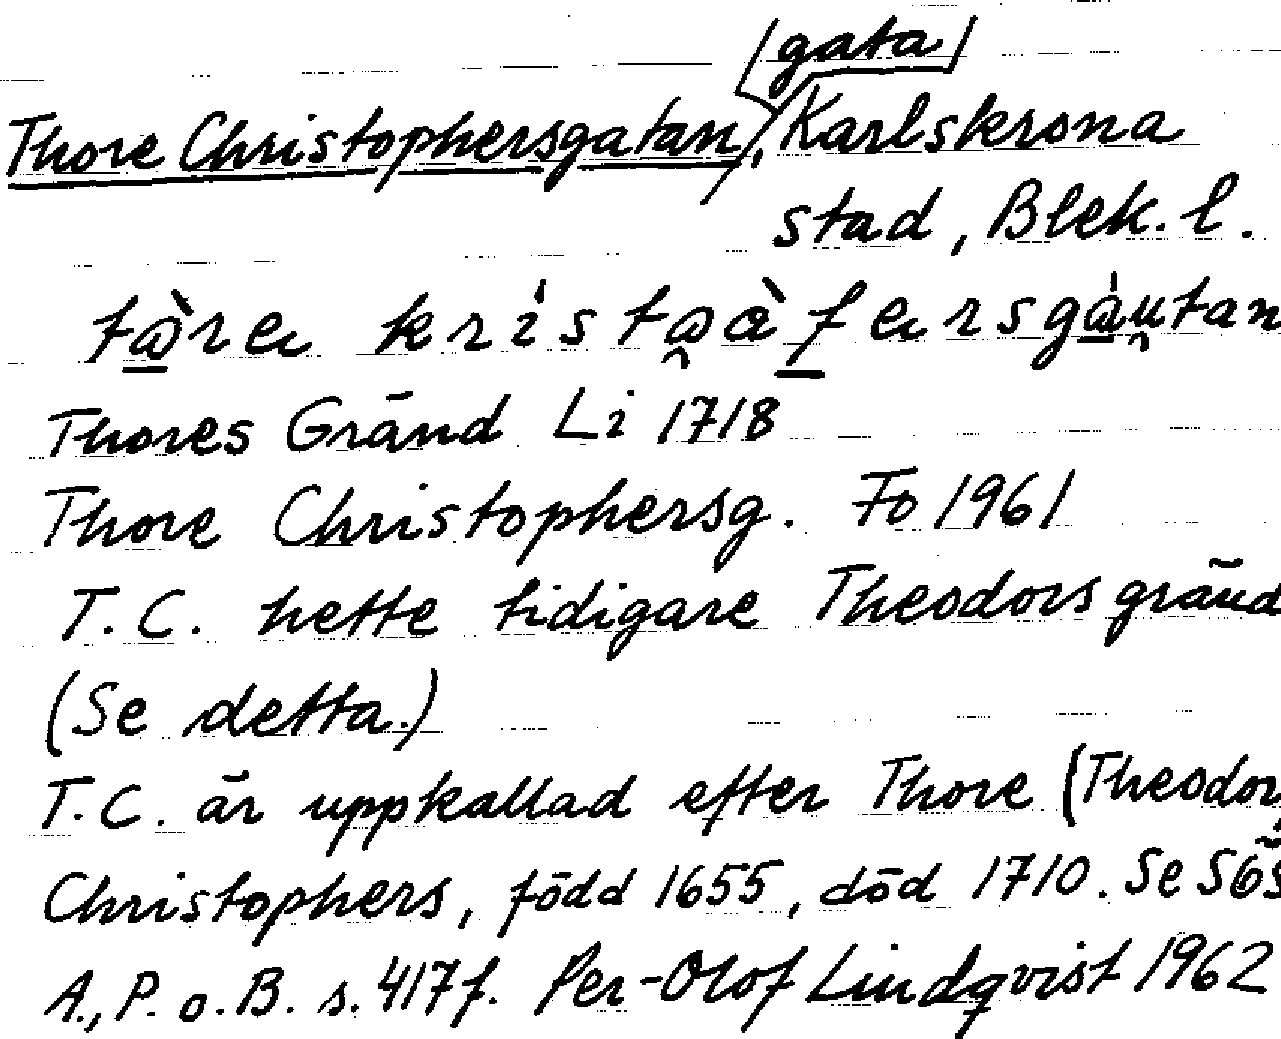 [gata]
Thore Christophersgatan, Karlskrona
stad, Blek. l.
Thores Gränd Li 1718
Thore Christophersg. Fo 1961
T.C. hette tidigare Theodors gränd
(Se detta.)
T.C. är uppkallad efter Thore (Theodor)
Christophers, född 1655, död 1710. Se
A., P. o. B. s. 417 f. Per-Olof Lindqvist 1962